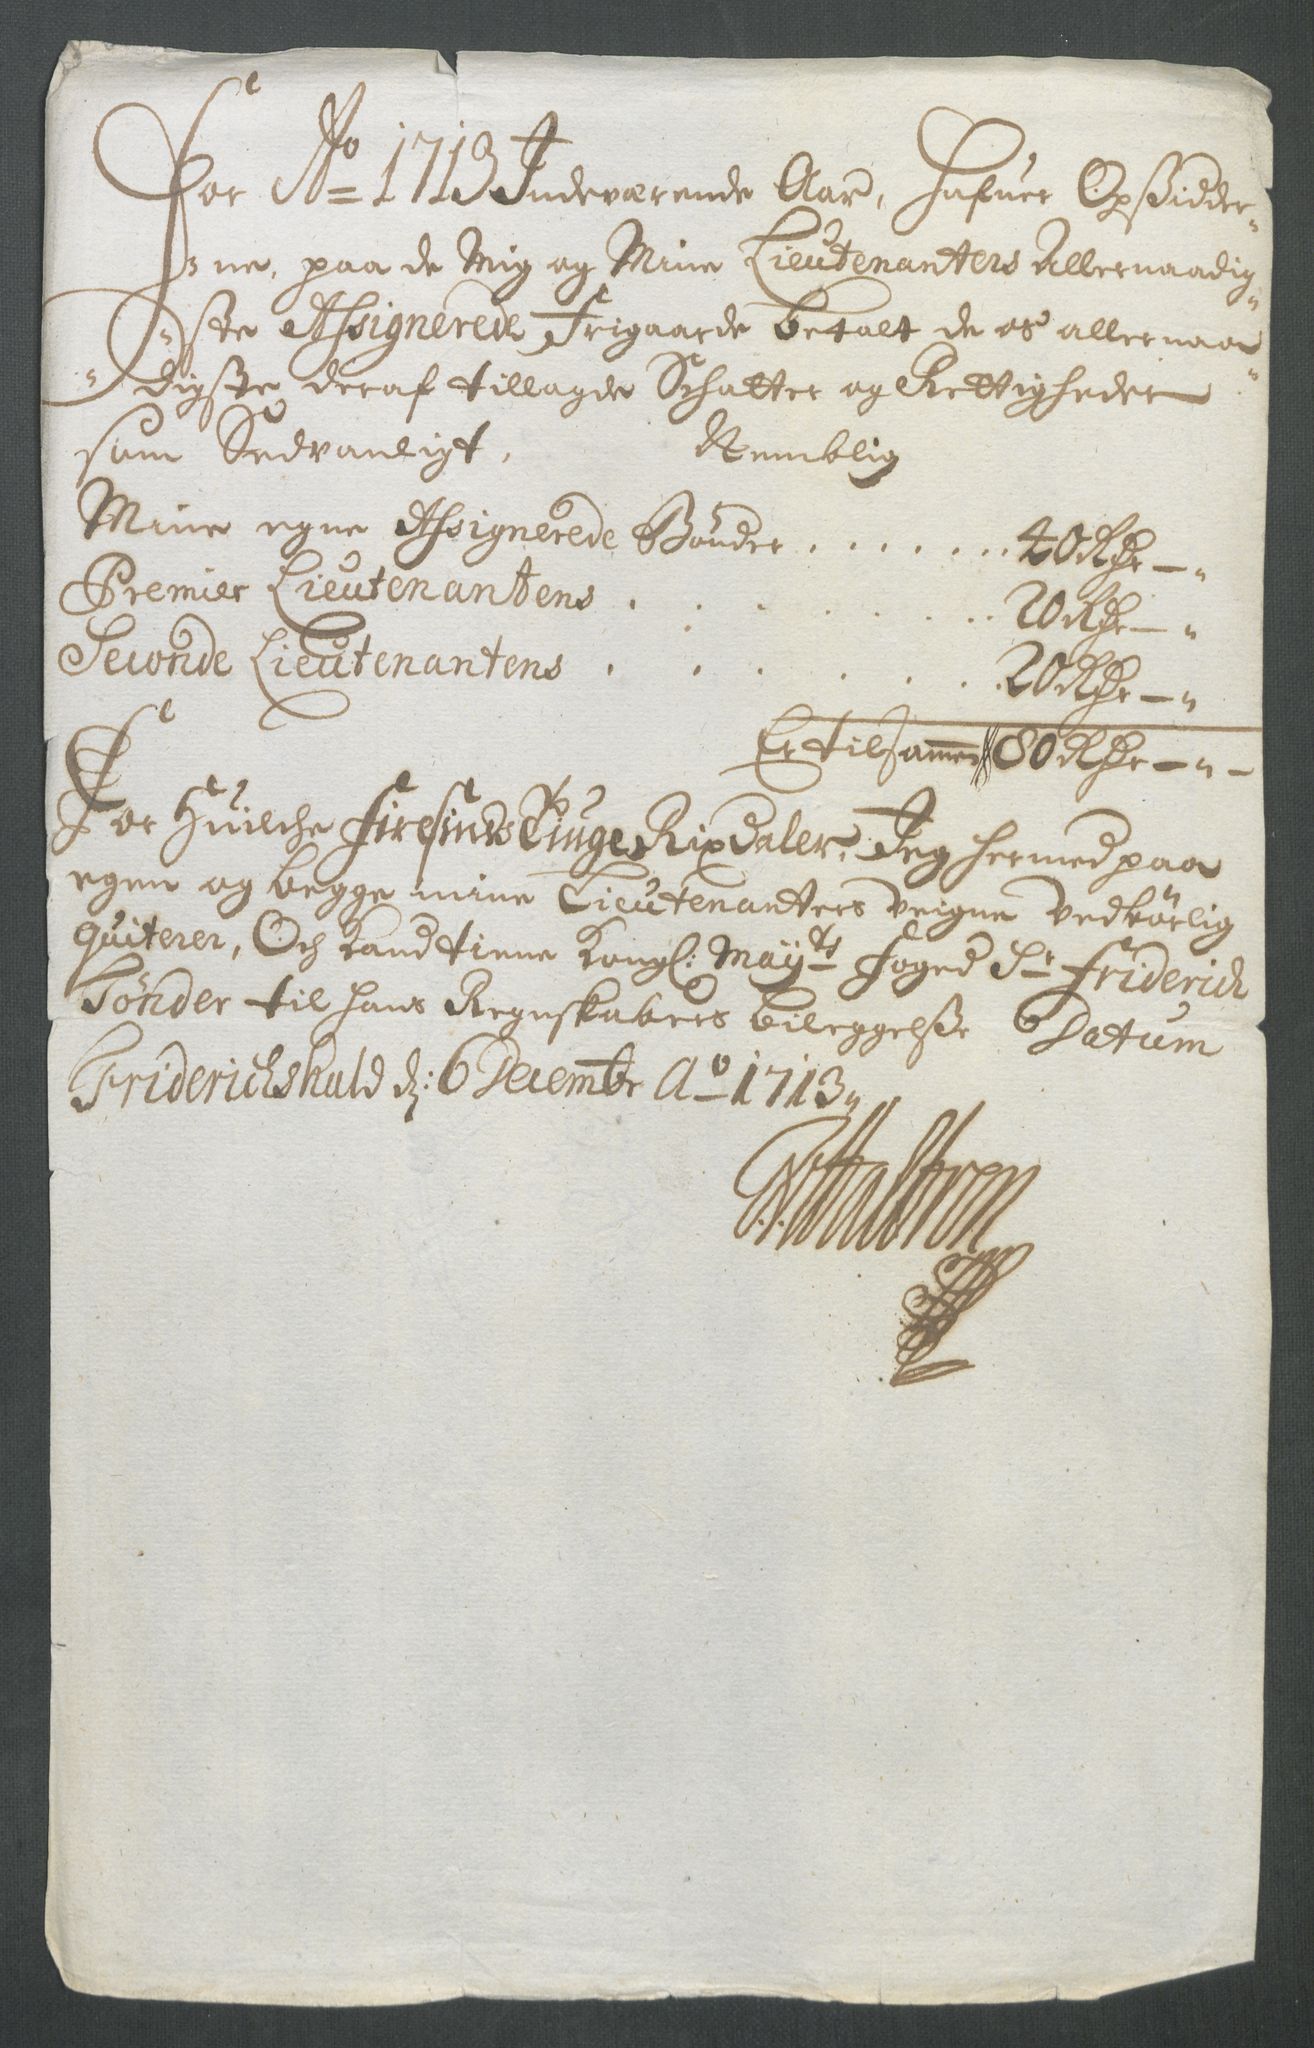 For Ao 1713 Indeværende Aar, hafuer Opsidder-
ne, paa de Mig og Mine Lieutenanters Allernaadig-
ste Assignerede Frigaarde betalt de os allernaa-
digste deraf tillagde Schatter og Rettigheder
som Sedvanligt, Nemblig
Mine egne Assignerede Bönder . . . . . . . 40 Rdr — "
Premier Lieutenantens . . . . . . 20 Rdr — "
Seconde Lieutenantens . . . . . . 20 Rdr — "
Er tilsammen 80 Rdr — " —
For Huilche firesinds Tiuge Rixdaler, Jeg hermed paa
egen og begge mine Lieutenanters veigne vedbörlig
quiterer, Och kand tiene Kongl: Mayts foged Sr Friderich
Tönder til hans Regnskabers bileggelse Datum
Friderichshald d: 6 Decembr Ao 1713 "